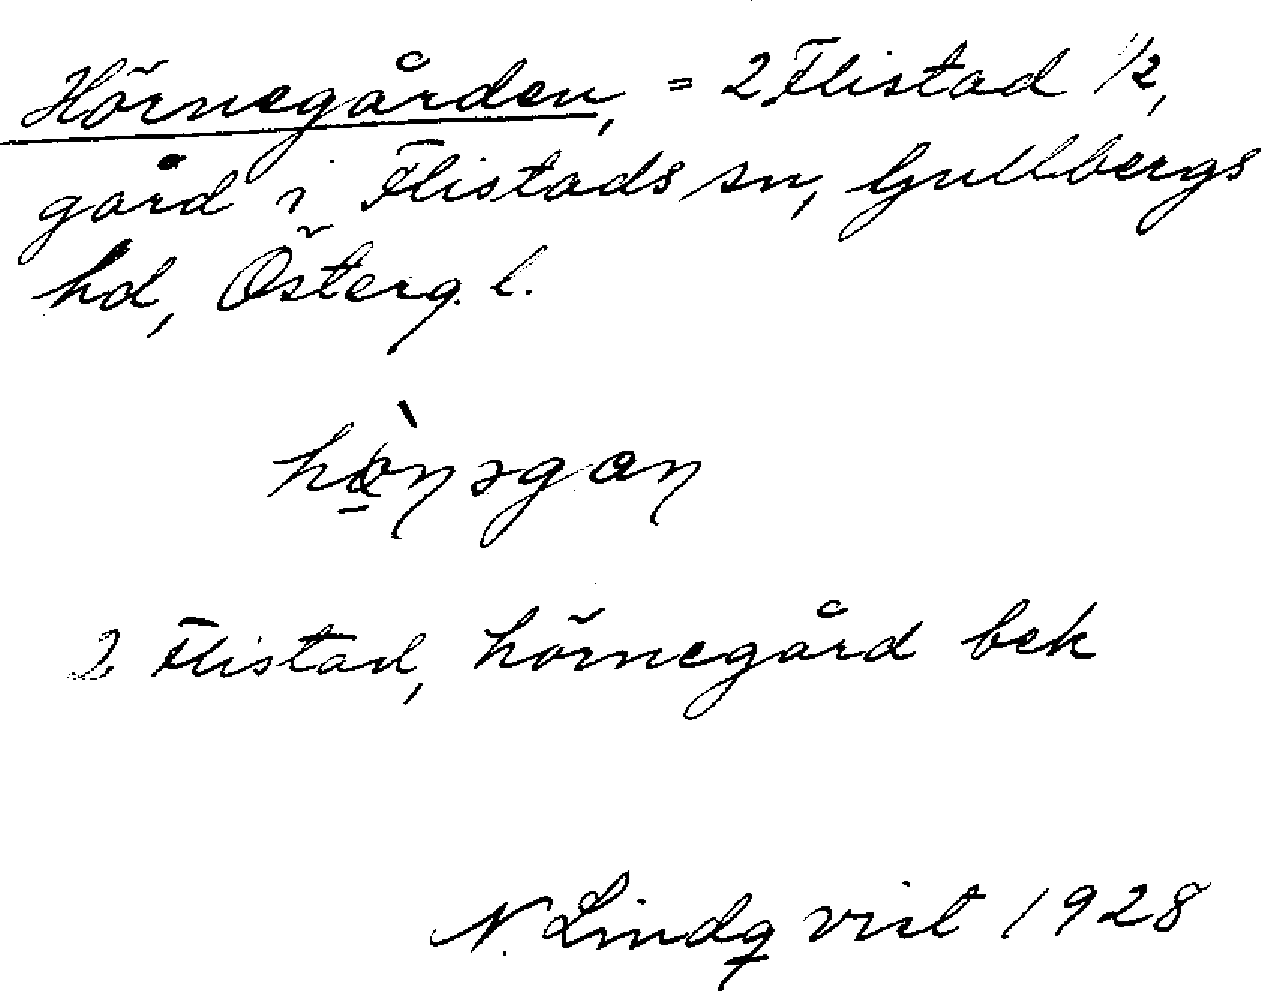 Hörnegården, = 2 Flistad 1/2,
gård i Flistads sn, Gullbergs
hd, Österg. l.
2 Flistad, hörnegård bek
N. Lindqvist 1928